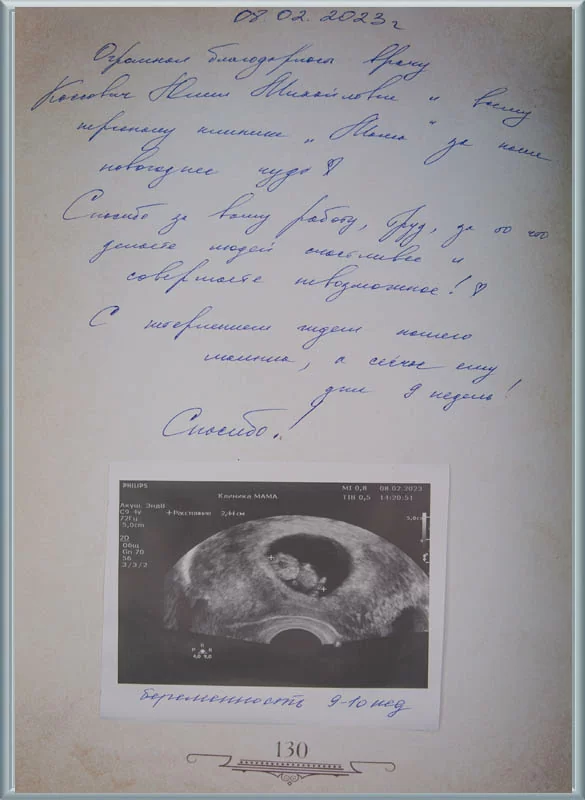 08.02.2023г
Огромная благодарность врачу
Юлии Михайловне и всему
персоналу клиники „Мама“ за наше
новогоднее чудо
Спасибо за вашу работу, труд, за то что
делаете людей счастливее и
совершаете невозможное!
С нетерпением ждем нашего
малыша, а сейчас ему
уже 9 недель!
Спасибо!
PHILIPS
Клиника МАМА
MI 0,8 08.02.2023
TIB 0,5 14:20:51
Акуш. ЭндВ
C9-4v
72Гц
5,0cm
+Расстояние 2,44 см
5,0cm
2D
Общ
Gn 70
56
3/3/2
беременность 9-10 нед
130